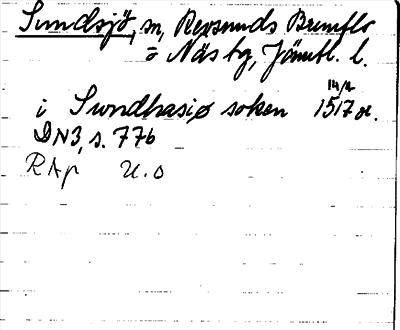 Sundsjö, sn, Revsunds Brunflo
= Näs tg, Jämtl. l.
14/2
i Sundhasiø soken 1517 or.
DN3, s. 776
RAp U.O